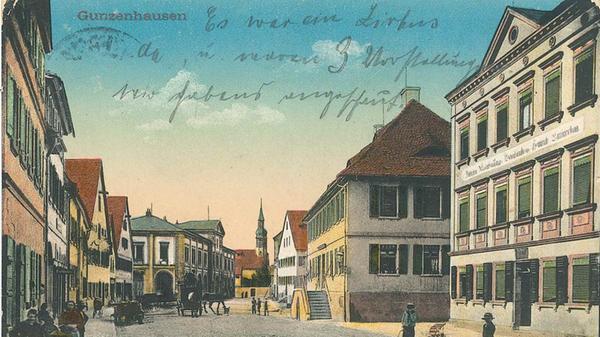 Gunzenhausen
Es war ein Zirkus
da, u. waren 3 Vorstellung
wir habens angeschaut